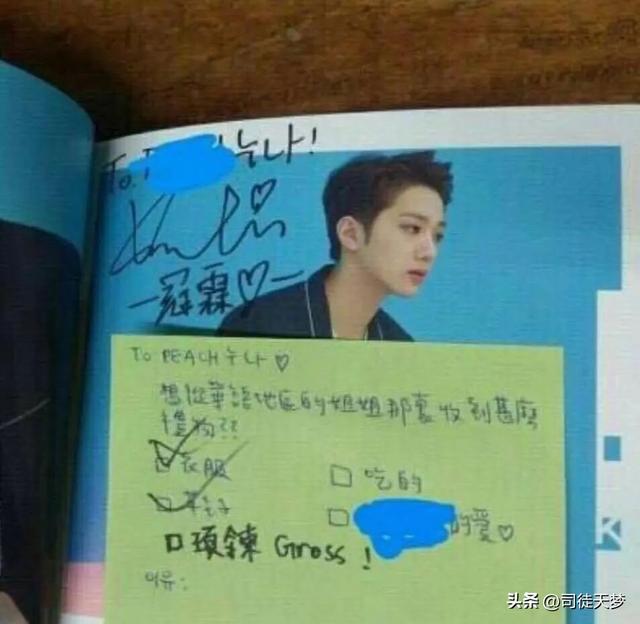 To. 누나!
一冠霖♡一
To PEACH누나 ♡
想從華語地區的姐姐那裏收到甚麼
禮物??
☑ 衣服
☐ 吃的
☑ 鞋子
☐ 的愛♡
☐ 項鍊 Gross !
이유:
K
头条 @司徒天梦